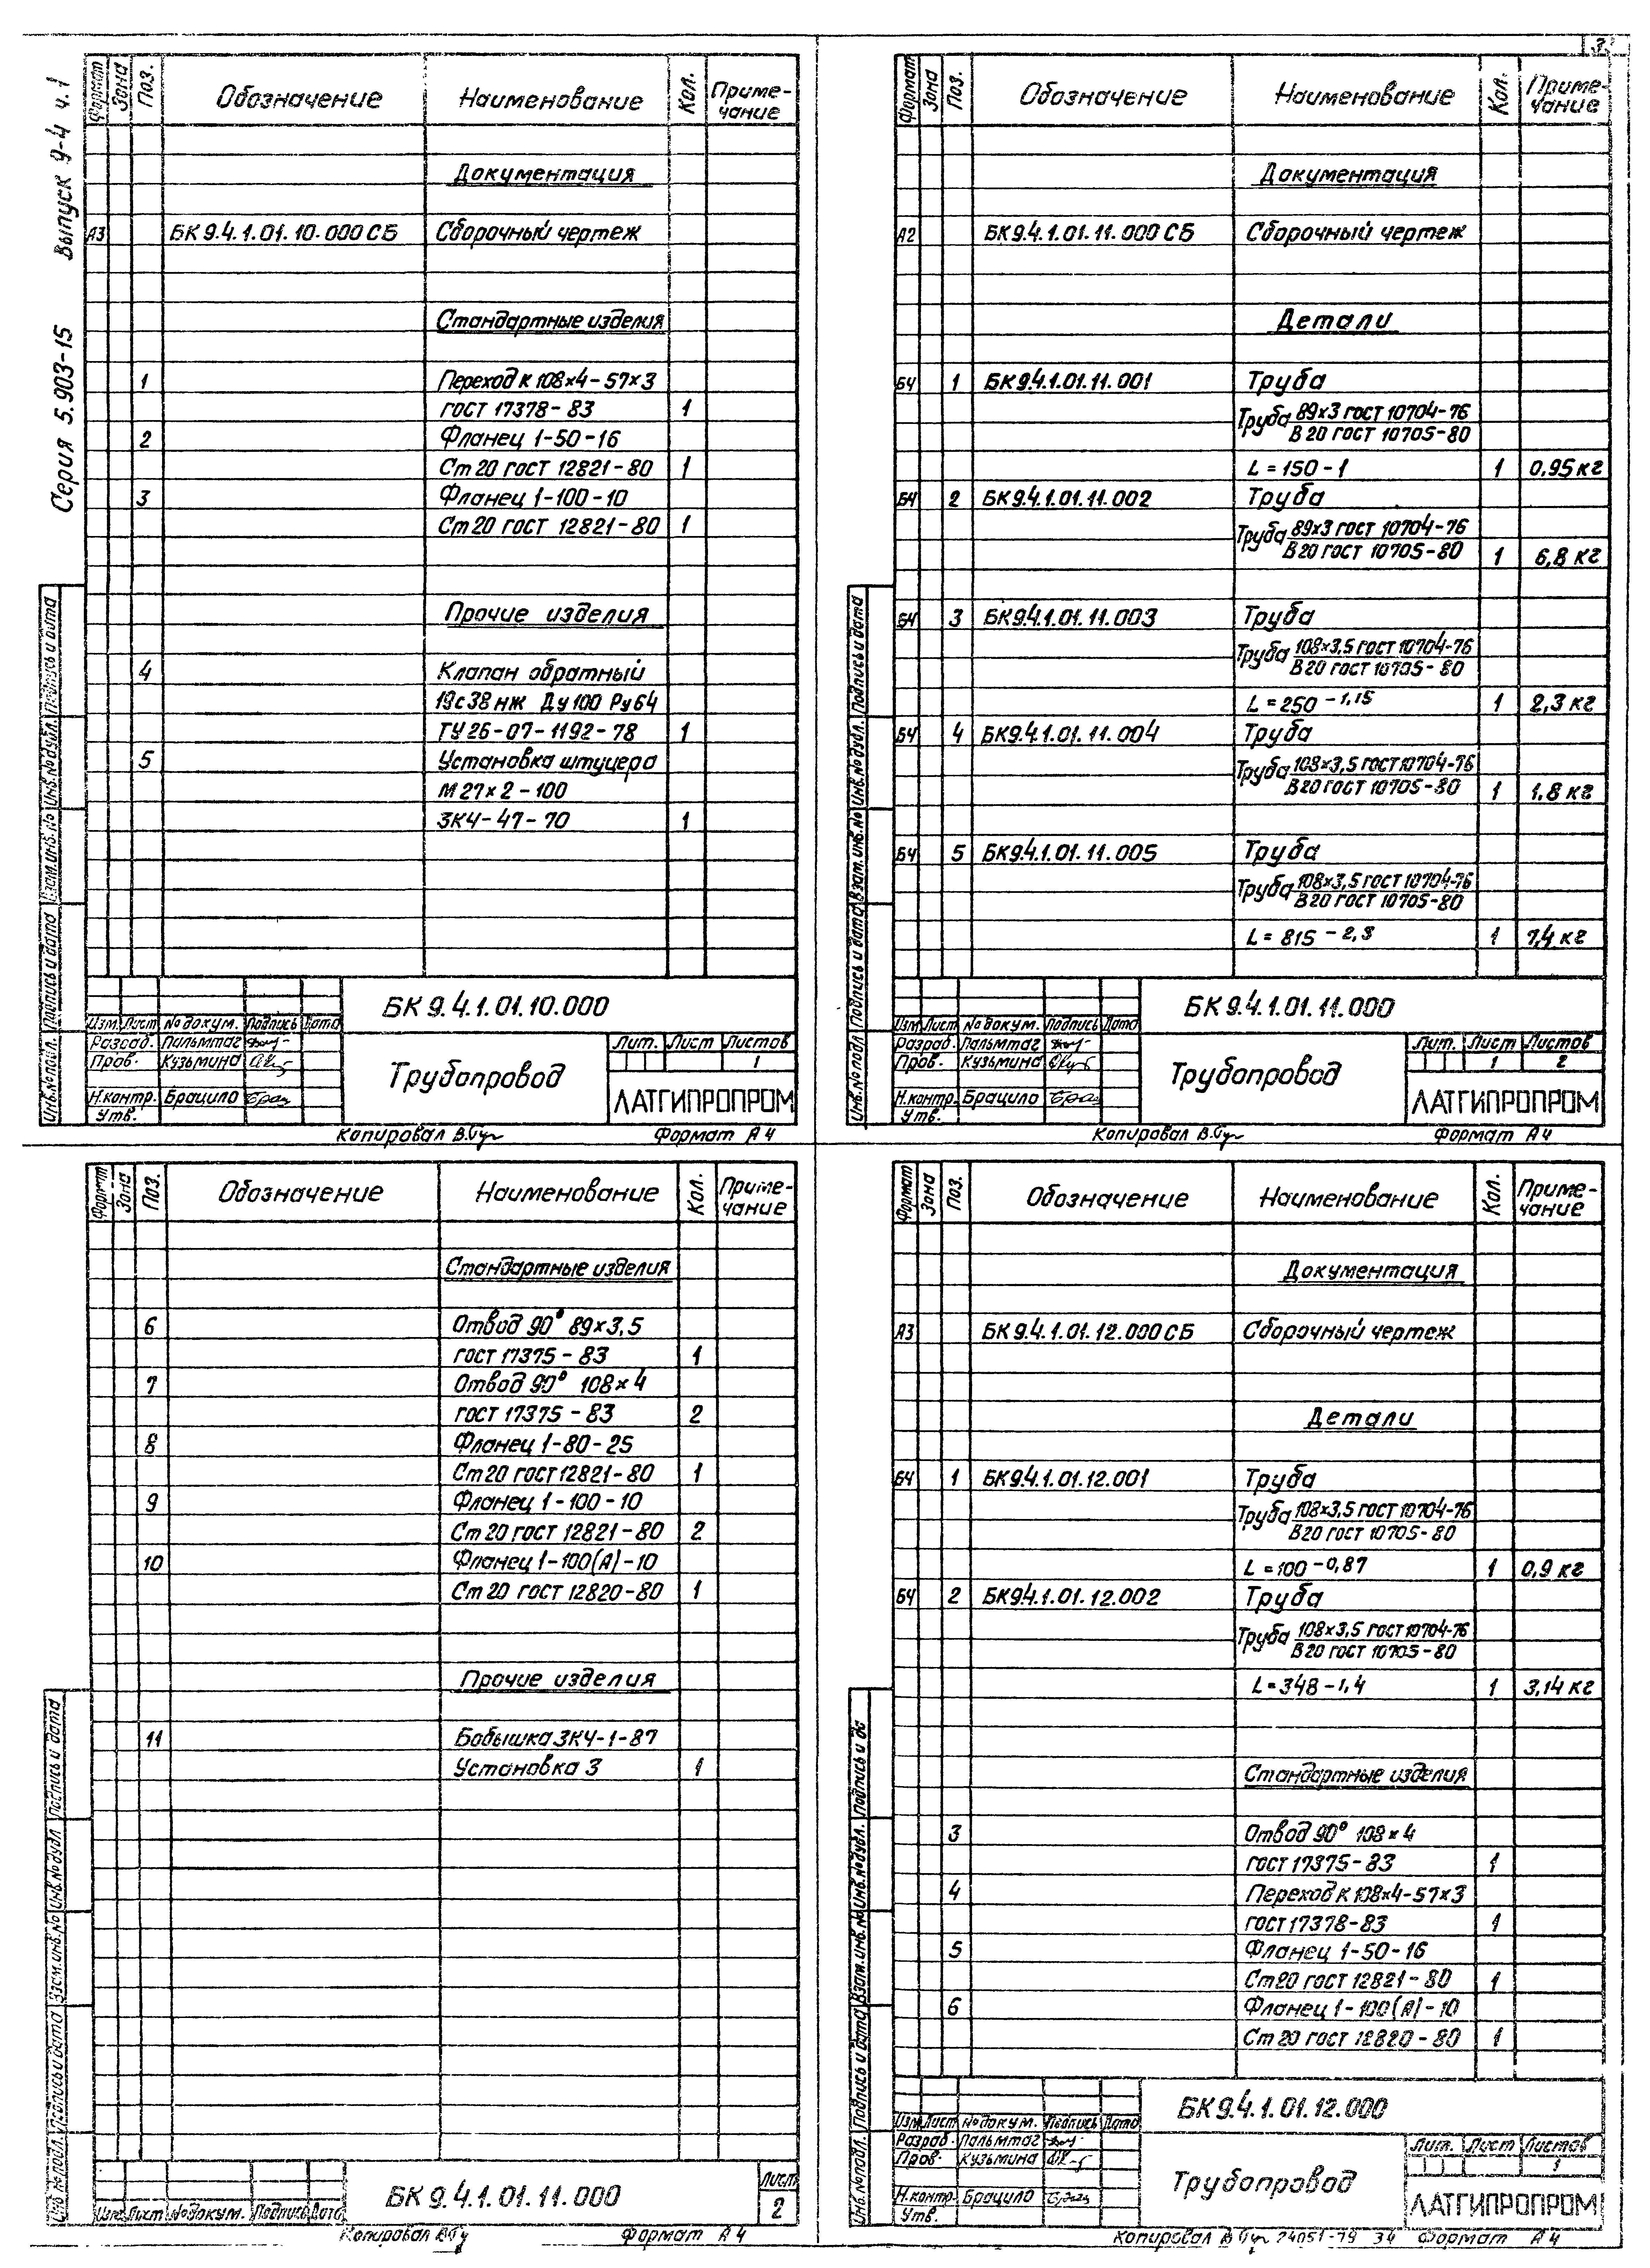 3
Серия 5.903-15 Выпуск 9-4 ч.1
Формат Зона Поз. Обозначение Наименование Кол. Примечание
Документация
А3 БК 9.4.1.01.10.000 СБ Сборочный чертеж
Стандартные изделия
1 Переход К 108×4-57×3
ГОСТ 17378-83 1
2 Фланец 1-50-16
Ст 20 ГОСТ 12821-80 1
3 Фланец 1-100-10
Ст 20 ГОСТ 12821-80 1
Прочие изделия
4 Клапан обратный
19с38нж Ду 100 Ру 64
ТУ 26-07-1192-78 1
5 Установка штуцера
М 27×2-100
ЗК4-47-70 1
Инв.№ подл. Подпись и дата Взам.инв.№ Инв.№ дубл. Подпись и дата
БК 9.4.1.01.10.000
Изм. Лист № докум. Подпись Дата
Разраб. Пальмтаг
Пров. Кузьмина
Н.контр. Брацило
Утв.
Трубопровод
Лит. Лист Листов
1
ЛАТГИПРОПРОМ
Копировал Формат А4
Формат Зона Поз. Обозначение Наименование Кол. Примечание
Документация
А2 БК 9.4.1.01.11.000 СБ Сборочный чертеж
Детали
БЧ 1 БК 9.4.1.01.11.001 Труба
Труба 89×3 ГОСТ 10704-76
В 20 ГОСТ 10705-80
L = 150 -1 1 0,95 кг
БЧ 2 БК 9.4.1.01.11.002 Труба
Труба 89×3 ГОСТ 10704-76
В 20 ГОСТ 10705-80 1 6,8 кг
БЧ 3 БК 9.4.1.01.11.003 Труба
Труба 108×3,5 ГОСТ 10704-76
В 20 ГОСТ 10705-80
L = 250 -1,15 1 2,3 кг
БЧ 4 БК 9.4.1.01.11.004 Труба
Труба 108×3,5 ГОСТ 10704-76
В 20 ГОСТ 10705-80 1 1,8 кг
БЧ 5 БК 9.4.1.01.11.005 Труба
Труба 108×3,5 ГОСТ 10704-76
В 20 ГОСТ 10705-80
L = 815 -2,3 1 7,4 кг
Инв.№ подл. Подпись и дата Взам.инв.№ Инв.№ дубл. Подпись и дата
БК 9.4.1.01.11.000
Изм. Лист № докум. Подпись Дата
Разраб. Пальмтаг
Пров. Кузьмина
Н.контр. Брацило
Утв.
Трубопровод
Лит. Лист Листов
1 2
ЛАТГИПРОПРОМ
Копировал Формат А4
Формат Зона Поз. Обозначение Наименование Кол. Примечание
Стандартные изделия
6 Отвод 90° 89×3,5
ГОСТ 17375-83 1
7 Отвод 90° 108×4
ГОСТ 17375-83 2
8 Фланец 1-80-25
Ст 20 ГОСТ 12821-80 1
9 Фланец 1-100-10
Ст 20 ГОСТ 12821-80 2
10 Фланец 1-100(А)-10
Ст 20 ГОСТ 12820-80 1
Прочие изделия
11 Бобышка ЗК4-1-87
Установка 3 1
Инв.№ подл. Подпись и дата Взам.инв.№ Инв.№ дубл. Подпись и дата
Изм. Лист № докум. Подпись Дата
БК 9.4.1.01.11.000
Лист
2
Копировал Формат А4
Формат Зона Поз. Обозначение Наименование Кол. Примечание
Документация
А3 БК 9.4.1.01.12.000 СБ Сборочный чертеж
Детали
БЧ 1 БК 9.4.1.01.12.001 Труба
Труба 108×3,5 ГОСТ 10704-76
В 20 ГОСТ 10705-80
L = 100 -0,87 1 0,9 кг
БЧ 2 БК 9.4.1.01.12.002 Труба
Труба 108×3,5 ГОСТ 10704-76
В 20 ГОСТ 10705-80
L = 348 -1,4 1 3,14 кг
Стандартные изделия
3 Отвод 90° 108×4
ГОСТ 17375-83 1
4 Переход К 108×4-57×3
ГОСТ 17378-83 1
5 Фланец 1-50-16
Ст 20 ГОСТ 12821-80 1
6 Фланец 1-100(А)-10
Ст 20 ГОСТ 12820-80 1
Инв.№ подл. Подпись и дата Взам.инв.№ Инв.№ дубл. Подпись и
БК 9.4.1.01.12.000
Изм. Лист № докум. Подпись Дата
Разраб. Пальмтаг
Пров. Кузьмина
Н.контр. Брацило
Утв.
Трубопровод
Лит. Лист Листов
1
ЛАТГИПРОПРОМ
Копировал 24051-79 34 Формат А4